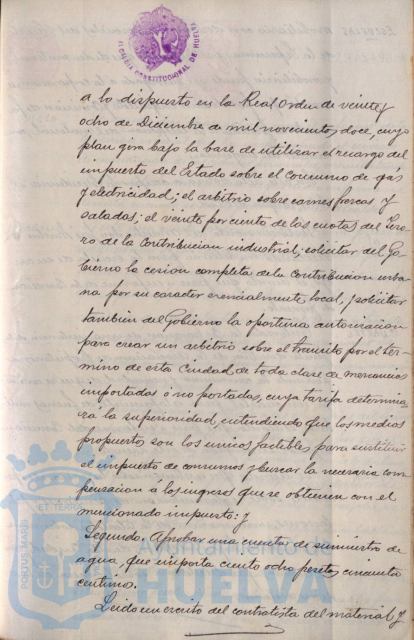 ALCALDIA CONSTITUCIONAL DE HUELVA
a lo dispuesto en la Real Orden de veinte y
ocho de Diciembre de mil novecientos doce, cuyo
plan gira bajo la base de utilizar el recargo del
impuesto del Estado sobre el consumo de gas
y electricidad; el arbitrio sobre carnes frescas y
saladas; el veinte por ciento de las cuotas del Teso-
ro de la Contribucion industrial; solicitar del Go-
bierno la cesion completa de la Contribucion urba-
na por su caracter esencialmente local, y solicitar
tambien del Gobierno la oportuna autorizacion
para crear un arbitrio sobre el transito por el ter-
mino de esta Ciudad de toda clase de mercancias
importadas ó no portadas, cuya tarifa determina-
rá la superioridad, entendiendo que los medios
propuestos son los unicos factibles para sustituir
el impuesto de consumos y buscar la necesaria com-
pensacion á los ingresos que se obtienen con el
mencionado impuesto: y
Segundo. Aprobar una cuenta de suministro de
agua, que importa ciento ocho pesetas cincuenta
centimos.
Leido un escrito del contratista del material y
PORTUS MARIS ET TERRE
Ayuntamiento de
HUELVA